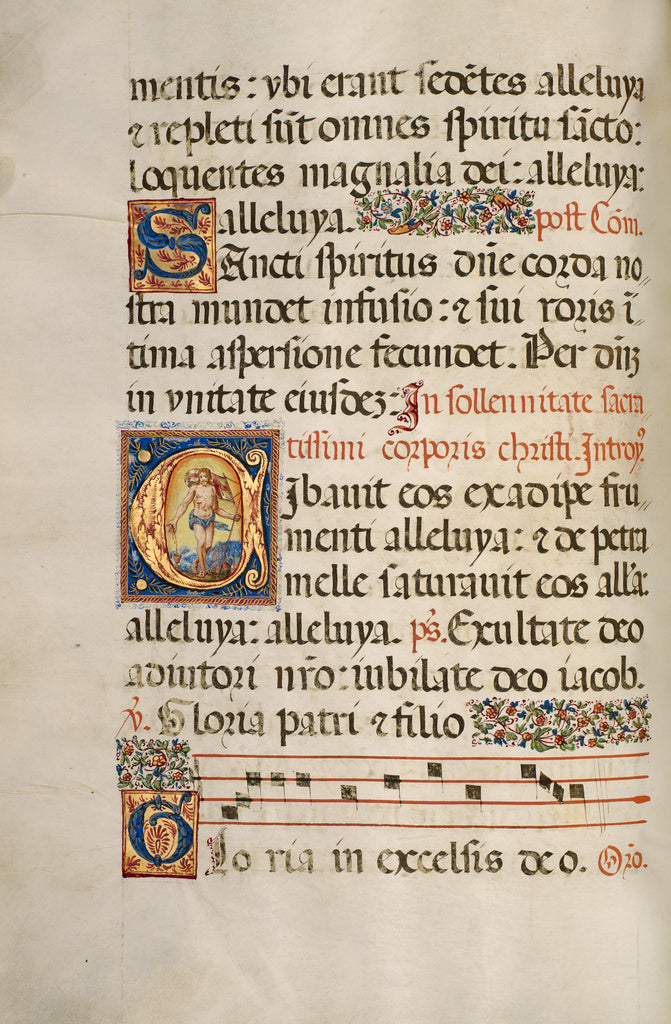 mentis: vbi erant sedẽtes alleluya
⁊ repleti sũt omnes spiritu sãcto:
loquentes magnalia dei: alleluya:
alleluya. post Cõm.
SAncti spiritus dñe corda no-
stra mundet infusio: ⁊ sui roris ĩ-
tima aspersione fecundet. Per dñꝫ
in vnitate eiusdeꝫ: In sollennitate sacra-
tissimi corporis christi. Introyꝰ
CIbauit eos exadipe fru-
menti alleluya: ⁊ de petra
melle saturauit eos alla:
alleluya: alleluya. ps. Exultate deo
adiutori nr̃o: iubilate deo iacob.
v. Gloria patri ⁊ filio
Glo ria in excelsis deo. Orõ.